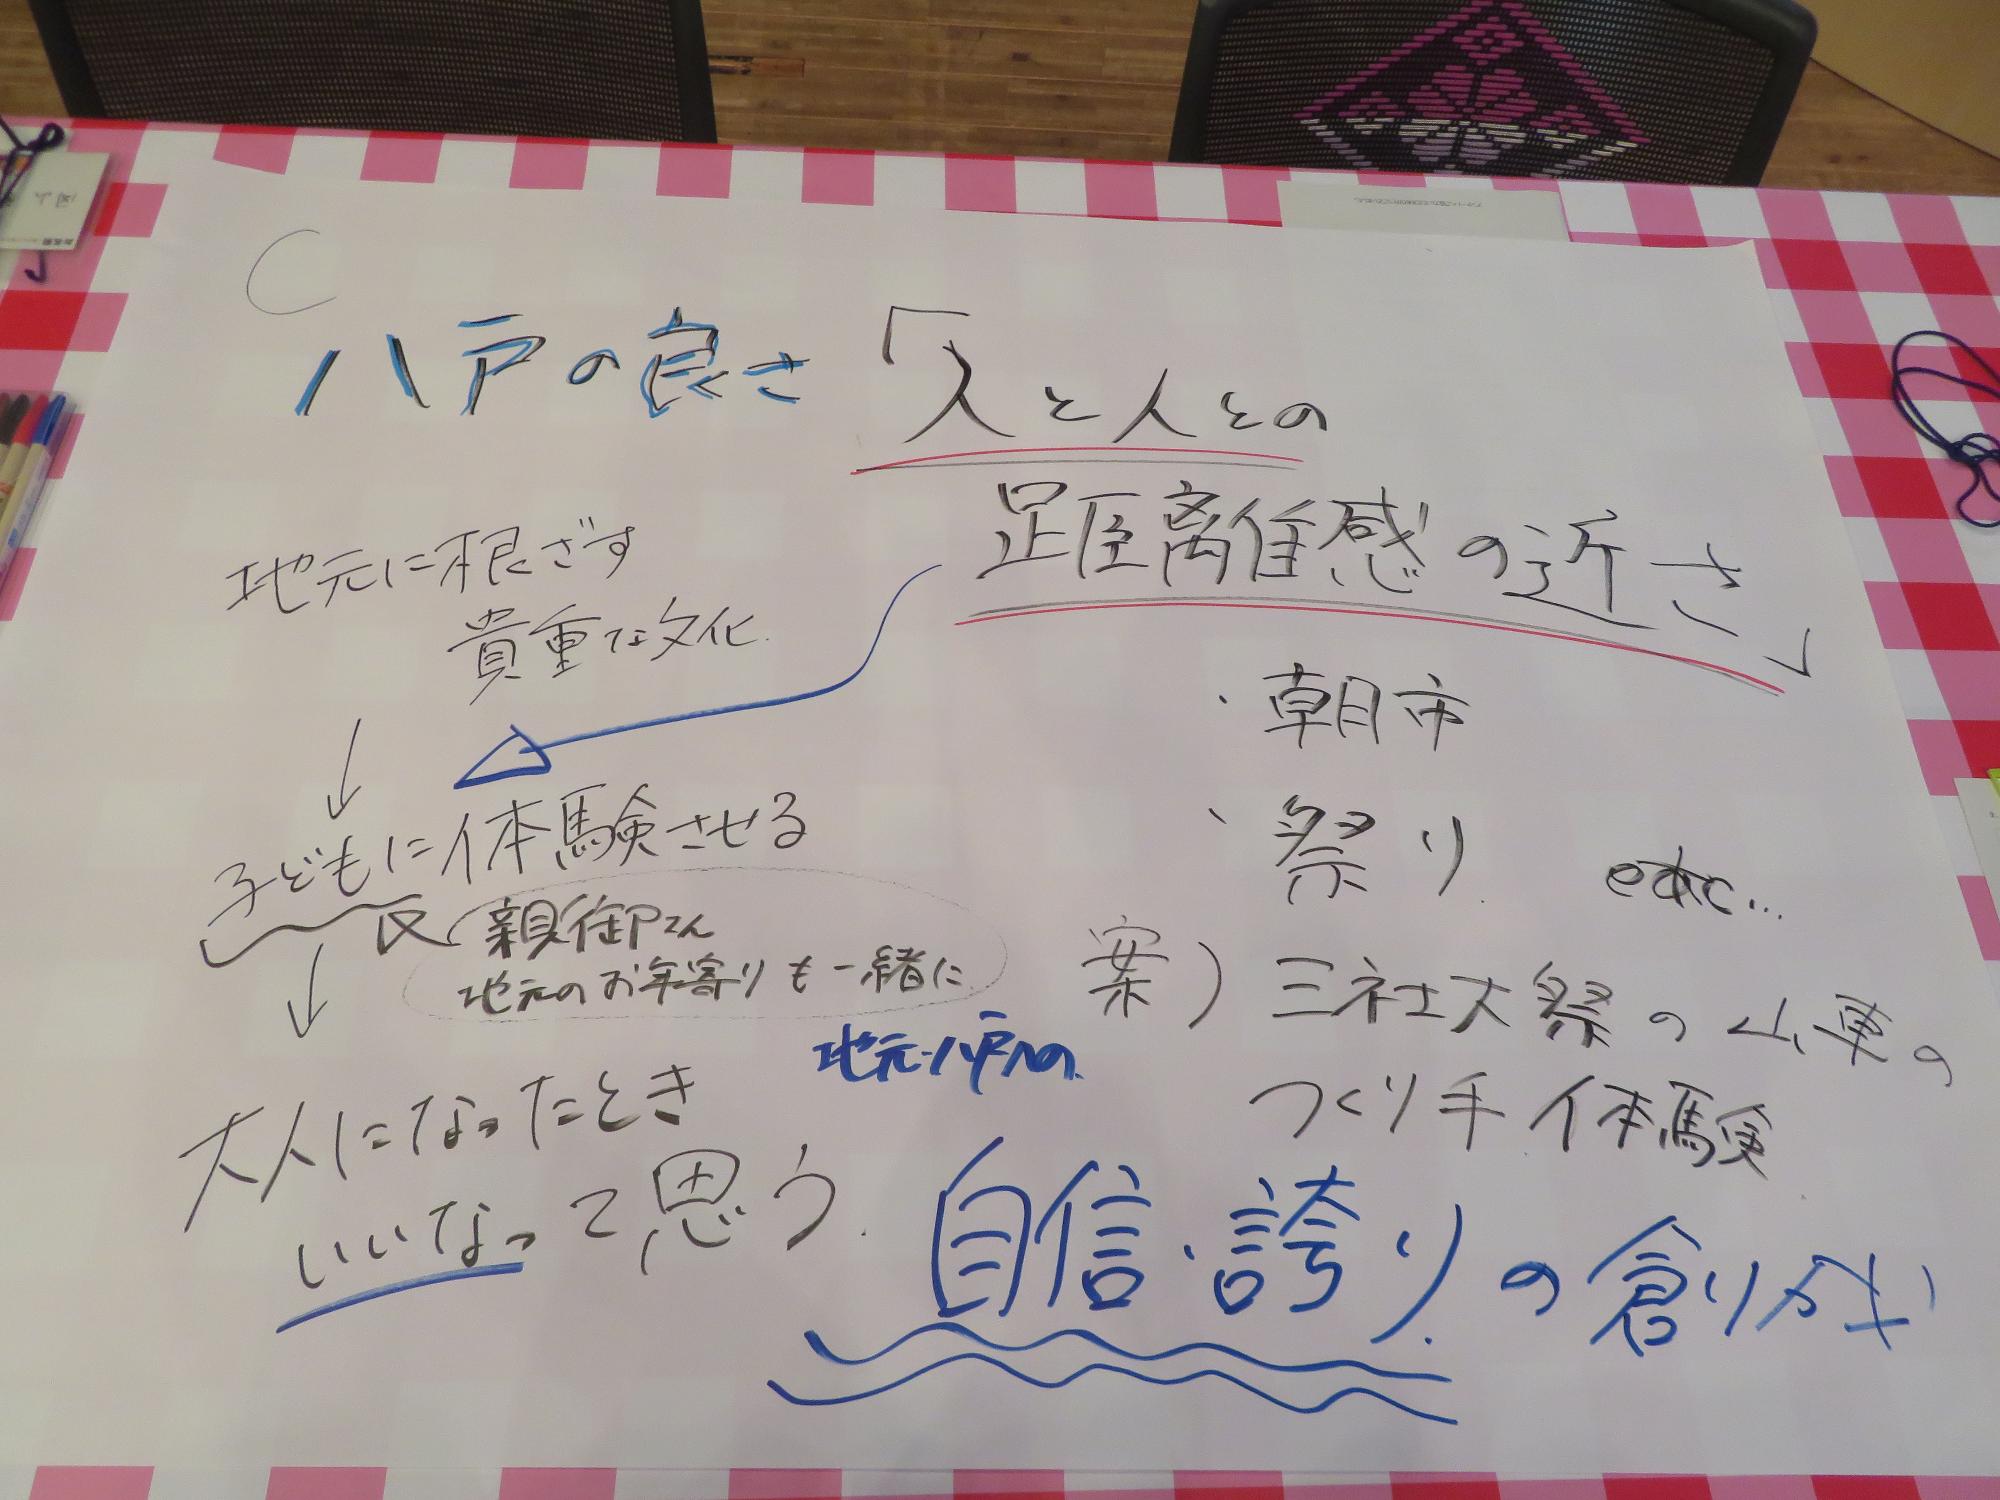 C
八戸の良さ「人と人との
距離感の近さ」
地元に根ざす
貴重な文化.
・朝市
・祭り etc...
子どもに体験させる
親御さん
地元のお年寄りも一緒に
案）三社大祭の山車の
つくり手体験
大人になったとき
いいなって思う.
地元・八戸への
自信・誇りの創成